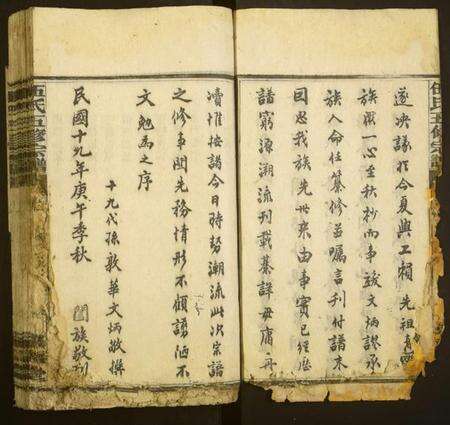 伍氏五修宗譜
遂決議於今夏興工賴先祖有靈
族衆一心至秋杪而事竣文炳謬承
族人命任纂修並囑言刊付譜末
回思我族先世來由事實已經歷
譜窮源溯流刊載綦詳毋庸再
瀆惟按諸今日時勢潮流此次宗譜
之修事關先務情形不顧譾陋不
文勉為之序
十九代孫敦華文炳敬撰
民國十九年庚午季秋
闔族敬刊
伍氏五修宗譜